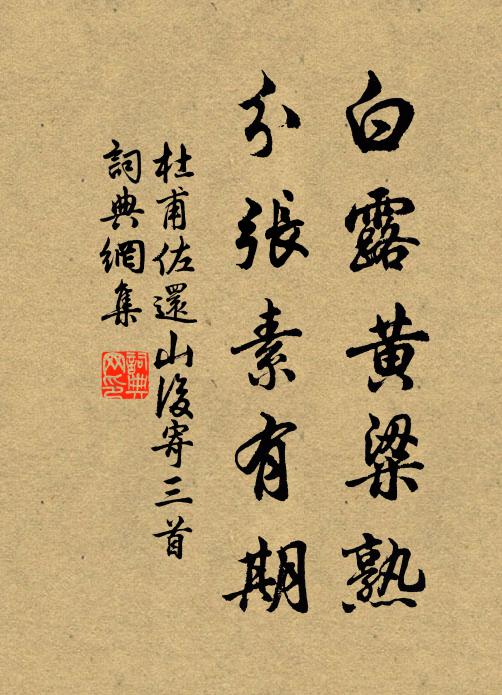 白露黄粱熟
分張素有期
杜甫佐還山後寄三首
詞典網集
詞典網印